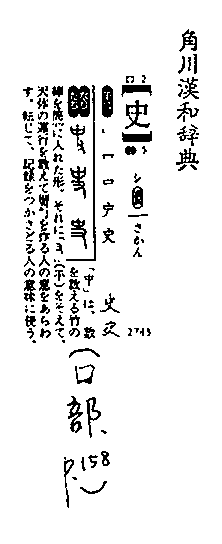 角川漢和辞典
【史】
シ
さかん
丶 口 口 史 史
史
2745
「中」は、数
を数える竹の
棒を筒に入れた形。それに「ヨ」(手)をそえて、
天体の運行を数えて暦を作る人の意をあらわ
す。転じて、記録をつかさどる人の意味に使う。
(口部、
P.158)